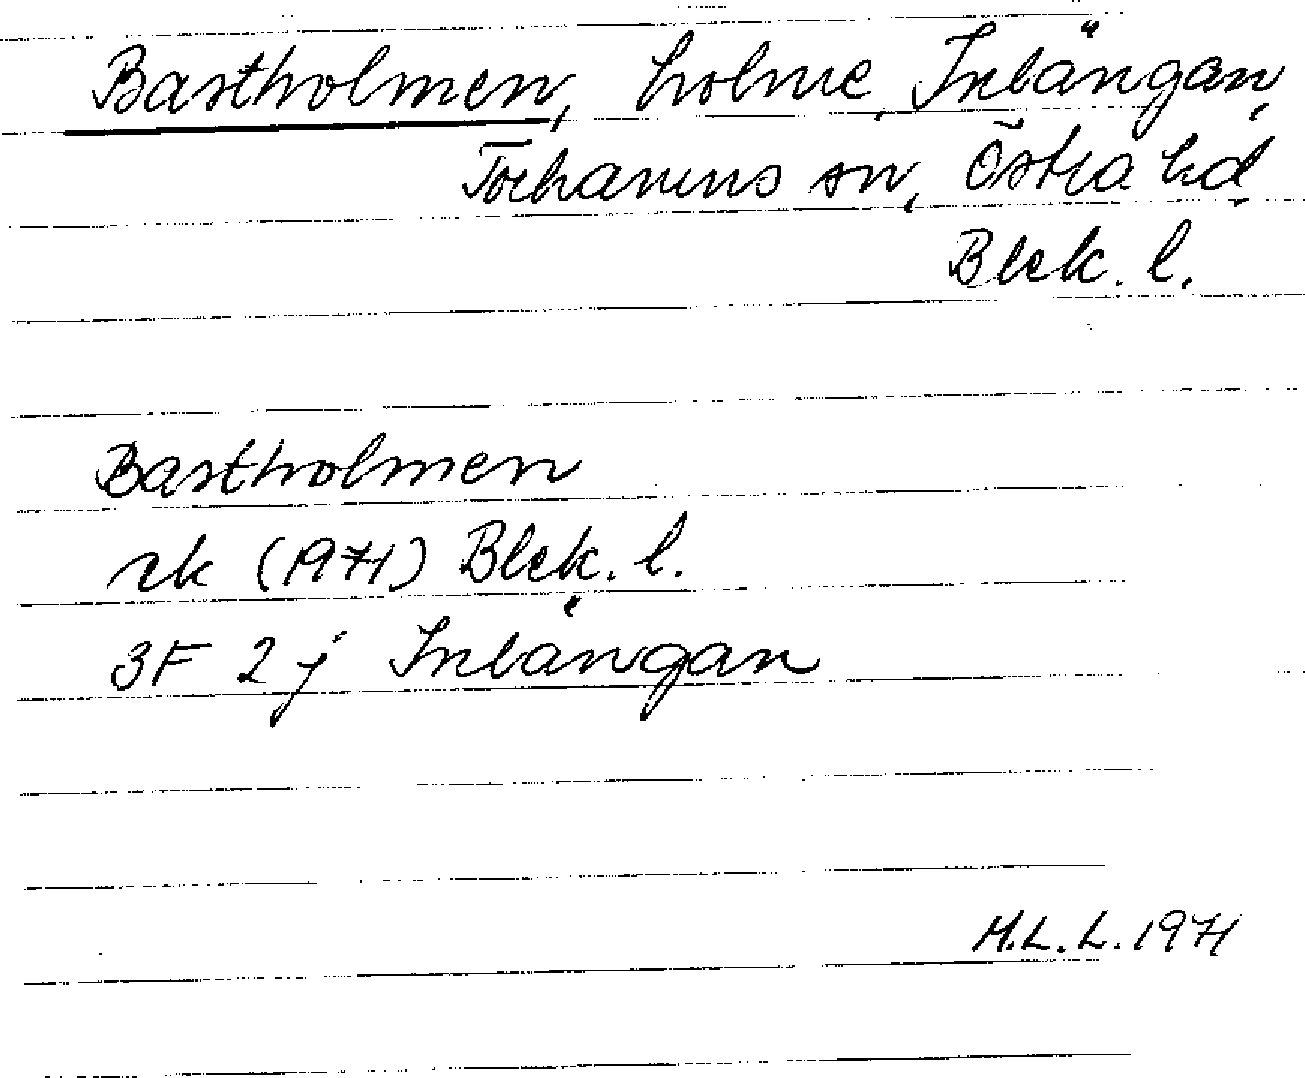 Bastholmen, holme, Inlängan,
Torhamns sn, Östra hd,
Blek. l.
Bastholmen
rk (1971) Blek. l.
3F 2j Inlängan
M.L.L. 1971